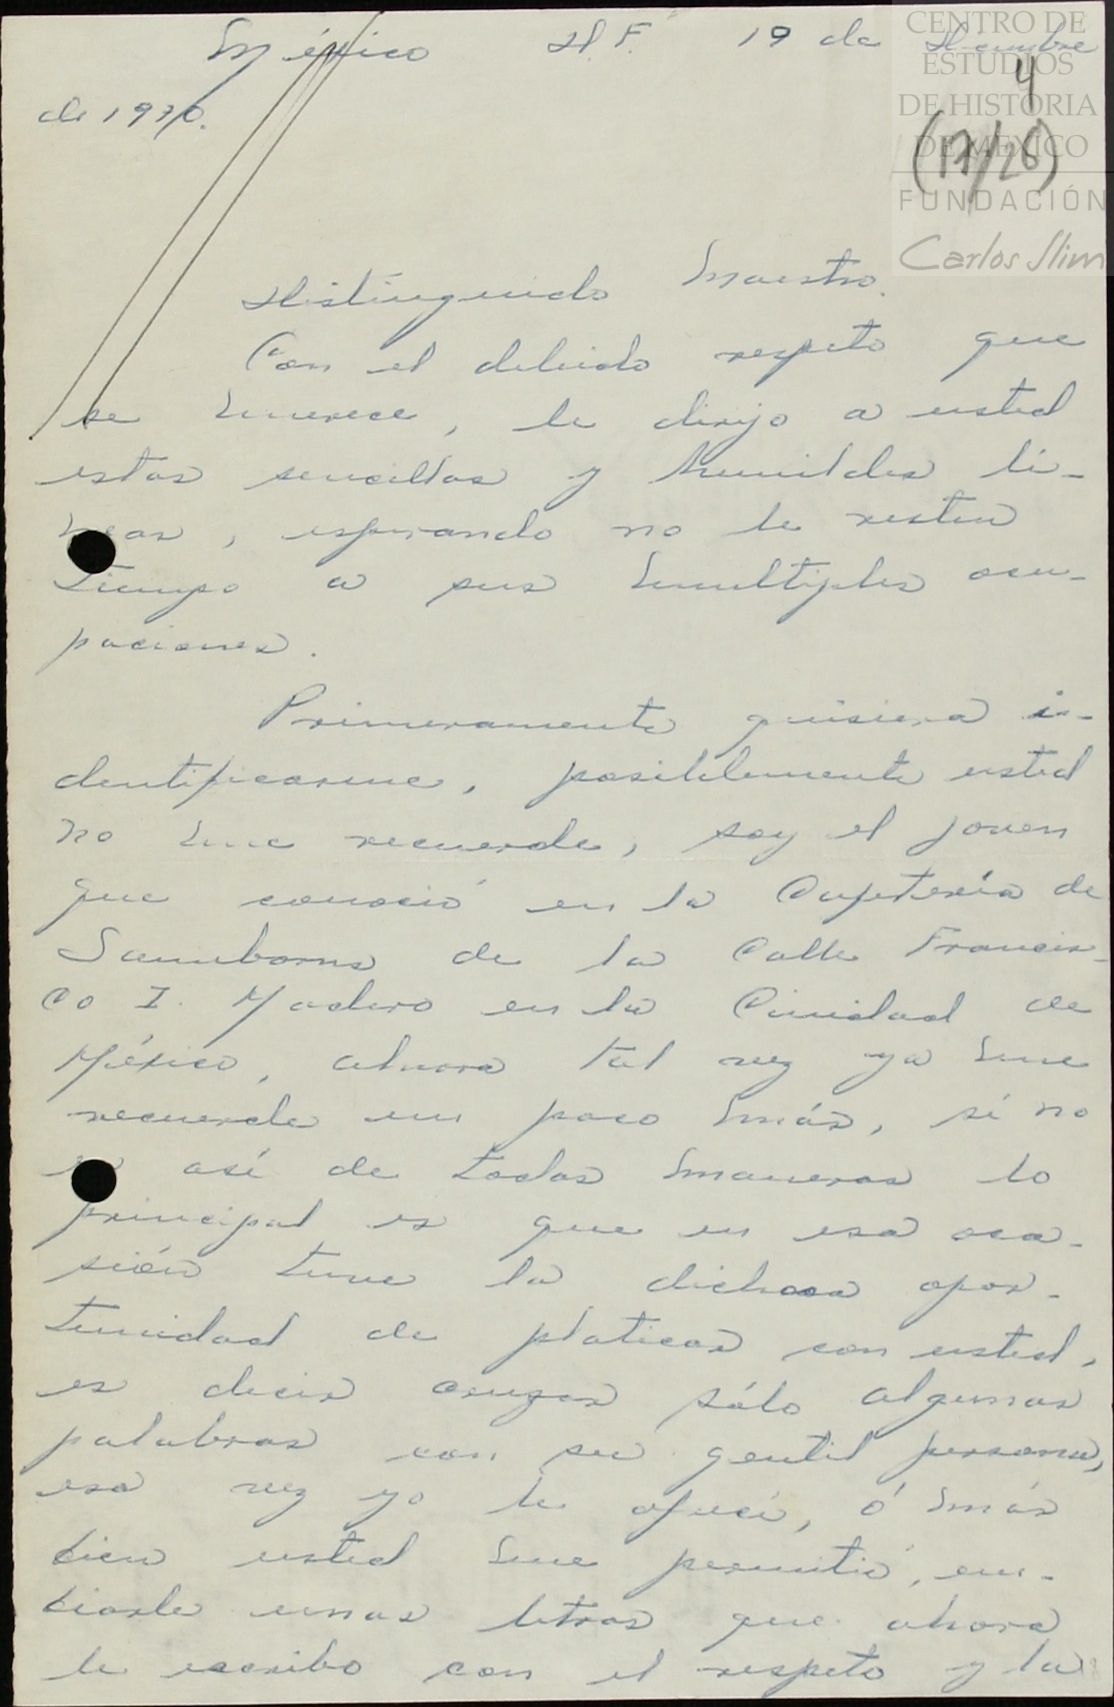 México D.F. 19 de Diciembre
de 1970.
4
(17/26)
CENTRO DE
ESTUDIOS
DE HISTORIA
DE MÉXICO
FUNDACIÓN
Carlos Slim
Distinguido Maestro.
Con el debido respeto que
se merece, le dirijo a usted
estas sencillas y humildes lí-
neas, esperando no le resten
tiempo a sus multiples ocu-
paciones.
Primeramente quisiera i-
dentificarme, posiblemente usted
no me recuerde, soy el joven
que conoció en la Cafetería de
Sannborns de la Calle Francis-
co I. Madero en la Ciudad de
México, ahora tal vez ya me
recuerde un poco más, si no
es así de todas maneras lo
principal es que en esa oca-
sión tuve la dichosa opor-
tunidad de platicar con usted,
es decir cruzar sólo algunas
palabras con su gentil persona,
esa vez yo le ofrecí, ó más
bien usted me permitió, en-
viarle unas letras que ahora
le escribo con el respeto y la